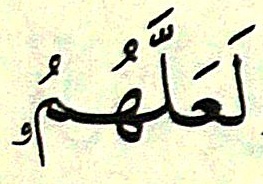 لَعَلَّهُمُۥ